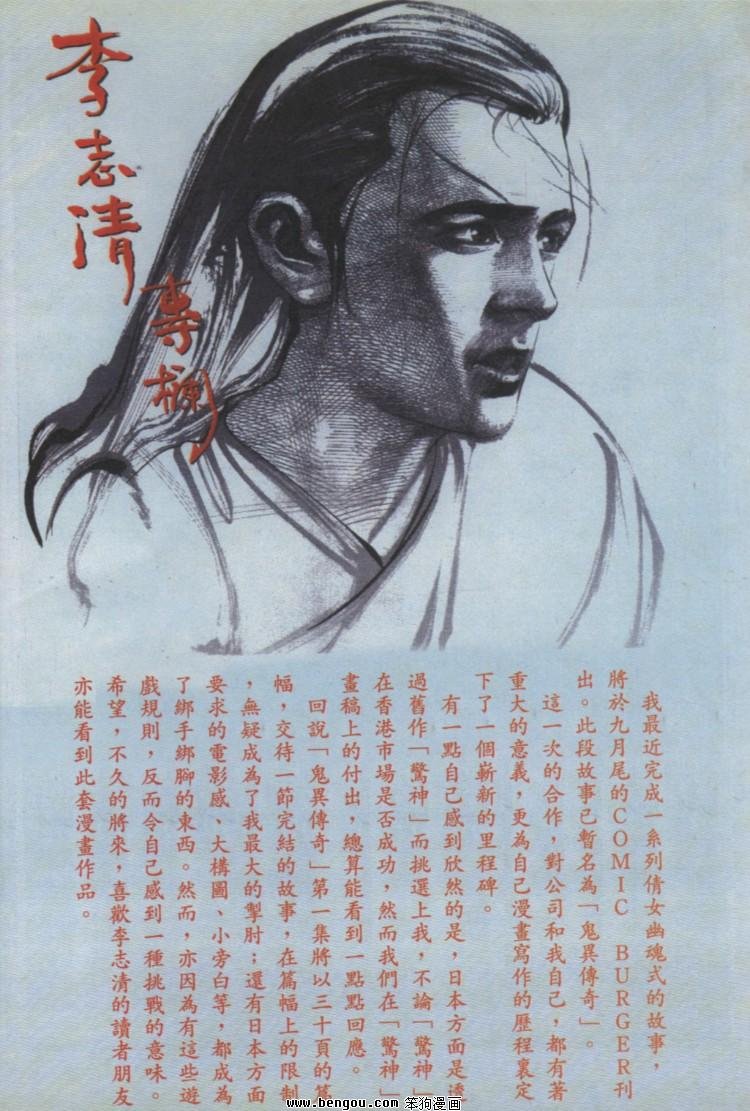 李志清
專欄
我最近完成一系列倩女幽魂式的故事，
將於九月尾的COMIC BURGER刊
出。此段故事已暫名為「鬼異傳奇」。
這一次的合作，對公司和我自己，都有著
重大的意義，更為自己漫畫寫作的歷程裏定
下了一個嶄新的里程碑。
有一點自己感到欣然的是，日本方面是透
過舊作「驚神」而挑選上我，不論「驚神」
在香港市場是否成功，然而我們在「驚神」
畫稿上的付出，總算能看到一點點回應。
回說「鬼異傳奇」第一集將以三十頁的篇
幅，交待一節完結的故事，在篇幅上的限制
，無疑成為了我最大的掣肘；還有日本方面
要求的電影感、大構圖、小旁白等，都成為
了綁手綁腳的東西。然而，亦因為有這些遊
戲規則，反而令自己感到一種挑戰的意味。
希望，不久的將來，喜歡李志清的讀者朋友
亦能看到此套漫畫作品。
www.bengou.com 笨狗漫画